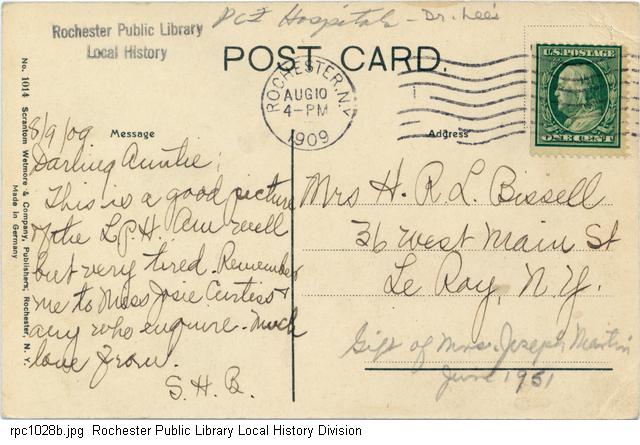 Rochester Public Library
Local History
PCI Hospitals - Dr. Lee's
POST CARD.
ROCHESTER, N.Y.
AUG 10
4-PM
1909
U.S. POSTAGE
ONE CENT
Message
Address
No. 1014 Scrantom Wetmore & Company, Publishers, Rochester, N. Y.
Made in Germany
8/9/09
Darling Auntie;
This is a good picture
of the L.P.H. Am well
but very tired. Remember
me to Miss Josie Curtiss &
any who enquire. Much
love from.
S. H. B.
Mrs H. R L. Bissell
36 West Main St
Le Roy, N.Y.
Gift of Mrs. Joseph Martin
June 1951
rpc1028b.jpg Rochester Public Library Local History Division